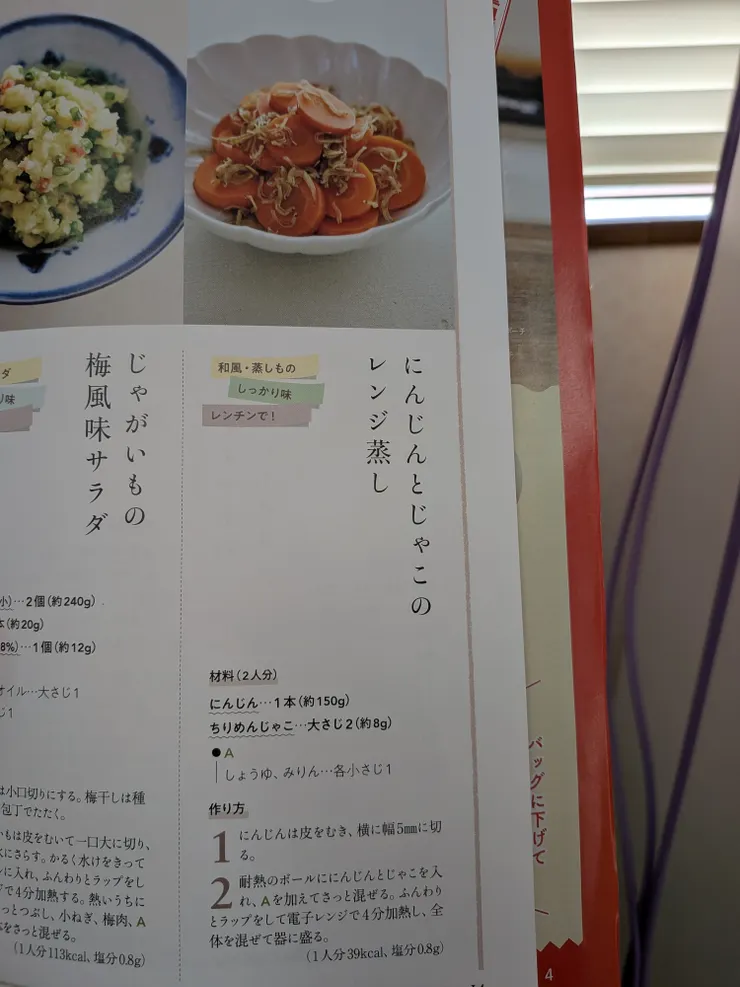 にんじんとじゃこの
レンジ蒸し
和風・蒸しもの
しっかり味
レンチンで!
材料(2人分)
にんじん…1本(約150g)
ちりめんじゃこ…大さじ2(約8g)
●A
しょうゆ、みりん…各小さじ1
作り方
1 にんじんは皮をむき、横に幅5mmに切
る。
2 耐熱のボールににんじんとじゃこを入
れ、Aを加えてさっと混ぜる。ふんわり
とラップをして電子レンジで4分加熱し、全
体を混ぜて器に盛る。
(1人分39kcal、塩分0.8g)
じゃがいもの
梅風味サラダ
ダ
り味
小)…2個(約240g)
本(約20g)
8%)…1個(約12g)
オイル…大さじ1
じ1
は小口切りにする。梅干しは種
包丁でたたく。
いもは皮をむいて一口大に切り、
水にさらす。かるく水けをきって
ルに入れ、ふんわりとラップをし
ジで4分加熱する。熱いうちに
っとつぶし、小ねぎ、梅肉、A
をさっと混ぜる。
(1人分113kcal、塩分0.8g)
バッグに下げて
4